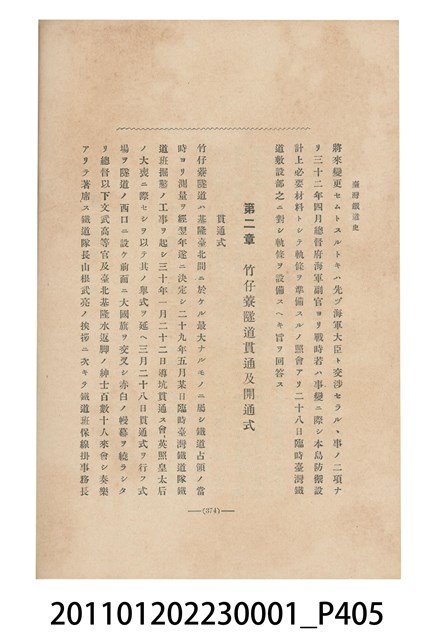 臺灣鐵道史
將來變更セムトスルトキハ先ヅ海軍大臣ト交渉セラルヽ事ノ二項ナ
リ三十二年四月總督府海軍副官ヨリ戰時若ハ事變ニ際シ本島防禦設
計上必要材料トシテ軌條ヲ準備スルノ照會アリ二十八日臨時臺灣鐵
道敷設部之ニ對シ軌條ヲ設備スヘキ旨ヲ回答ス
第二章 竹仔藔隧道貫通及開通式
貫通式
竹仔藔隧道ハ基隆臺北間ニ於ケル最大ナルモノニ屬シ鐵道占領ノ當
時ヨリ測量ヲ經翌年遂ニ決定シ二十九年五月某日臨時臺灣鐵道隊鐵
道班掘鑿ノ工事ヲ起シ三十年一月二十二日導坑貫通ス會英照皇太后
ノ大喪ニ際セシヲ以テ其ノ擧式ヲ延ヘ三月二十八日貫通式ヲ行フ式
場ヲ隧道ノ西口ニ設ケ前面ニ大國旗ヲ交叉シ赤白ノ幔幕ヲ繞ラシタ
リ總督以下文武高等官及臺北基隆水返脚ノ紳士百數十人來會シ奏樂
アリテ著席ス鐵道隊長山根武亮ノ挨拶ニ次キテ鐵道班保線掛事務長
—(374)—
201101202230001_P405